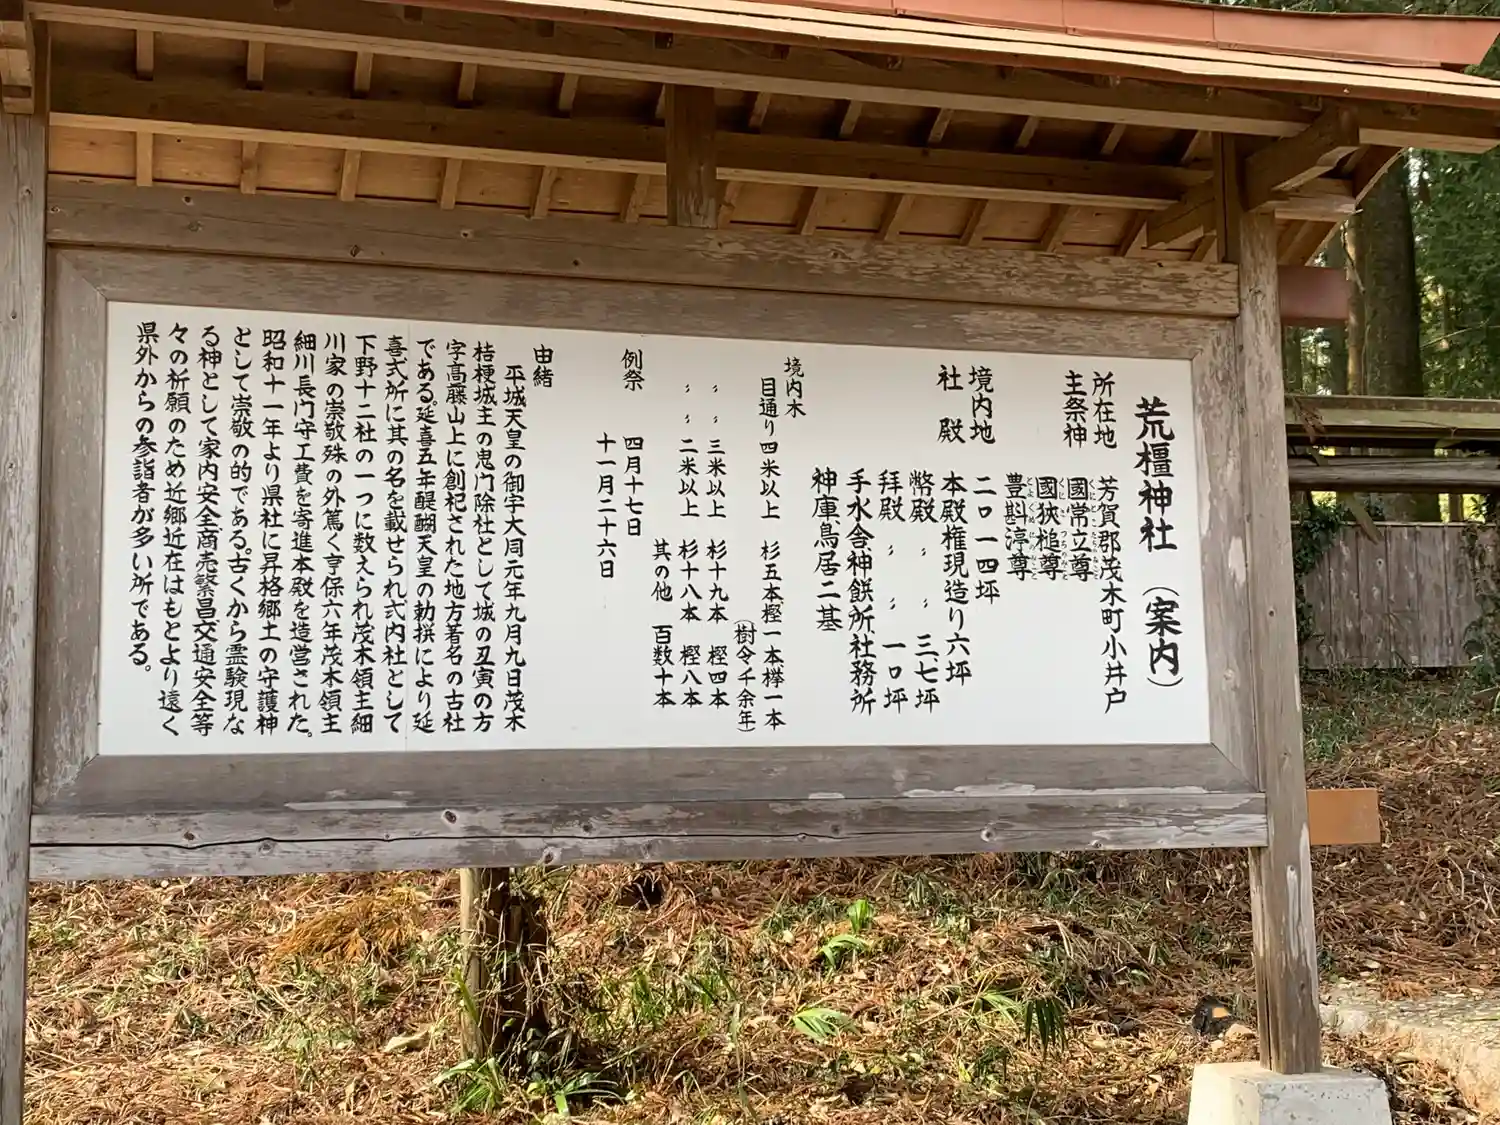 荒橿神社 (案内)
所在地 芳賀郡茂木町小井戸
主祭神 國常立尊
國狹槌尊
豊斟渟尊
境内地 二〇一四坪
社殿 本殿権現造り六坪
幣殿 〃 〃 三七坪
拝殿 〃 〃 一〇坪
手水舎神饌所社務所
神庫鳥居二基
境内木
目通り四米以上 杉五本樫一本欅一本
(樹令千余年)
〃 〃 三米以上 杉十九本 樫四本
〃 〃 二米以上 杉十八本 樫八本
其の他 百数十本
例祭 四月十七日
十一月二十六日
由緒
平城天皇の御宇大同元年九月九日茂木
桔梗城主の鬼門除社として城の丑寅の方
字高藤山上に創祀された地方著名の古社
である。延喜五年醍醐天皇の勅撰により延
喜式所に其の名を載せられ式内社として
下野十二社の一つに数えられ茂木領主細
川家の崇敬殊の外篤く亨保六年茂木領主
細川長門守工費を寄進本殿を造営された。
昭和十一年より県社に昇格郷土の守護神
として崇敬の的である。古くから霊験現な
る神として家内安全商売繁昌交通安全等
々の祈願のため近郷近在はもとより遠く
県外からの参詣者が多い所である。